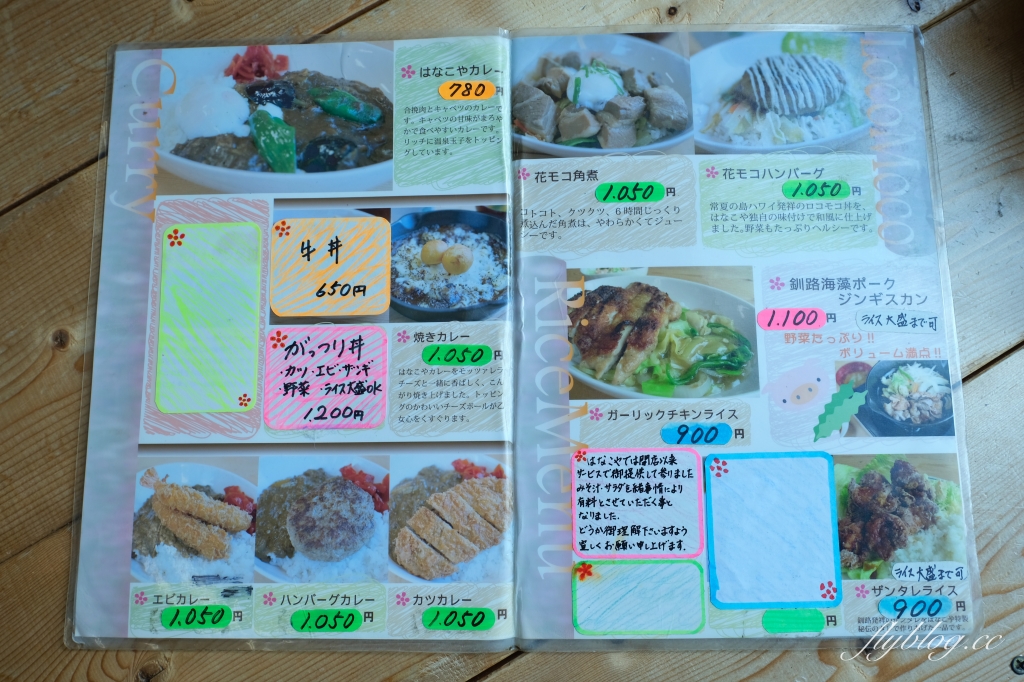 Curry
はなこやカレー
780円
合挽肉とキャベツのカレーで
す。キャベツの甘味がまろや
かで食べやすいカレーです。
リッチに温泉玉子をトッピン
グしています。
牛丼
650円
がっつり丼
・カツ・エビ・ザンギ
・野菜・ライス大盛OK
1.200円
焼きカレー
1.050円
はなこやカレーをモッツァレラ
チーズと一緒に香ばしく、こん
がり焼き上げました。トッピン
グのかわいいチーズボールが乙
女心をくすぐります。
エビカレー
1.050円
ハンバーグカレー
1.050円
カツカレー
1.050円
Loco Moco
花モコ角煮
1.050円
コトコト、クツクツ、6時間じっくり
煮込んだ角煮は、やわらかくてジュー
シーです。
花モコハンバーグ
1.050円
常夏の島ハワイ発祥のロコモコ丼を、
はなこや独自の味付けで和風に仕上げ
ました。野菜もたっぷりヘルシーです。
Rice Menu
釧路海藻ポーク
ジンギスカン
1.100円
ライス大盛まで可
野菜たっぷり!!
ボリューム満点!!
ガーリックチキンライス
900円
はなこやでは開店以来
サービスで御提供して参りました
みそ汁・サラダを諸事情により
有料とさせていただく事と
なりました.
どうか御理解下さいますよう
宜しくお願い申し上げます.
円
ライス大盛まで可
ザンタレライス
900円
flyblog.cc